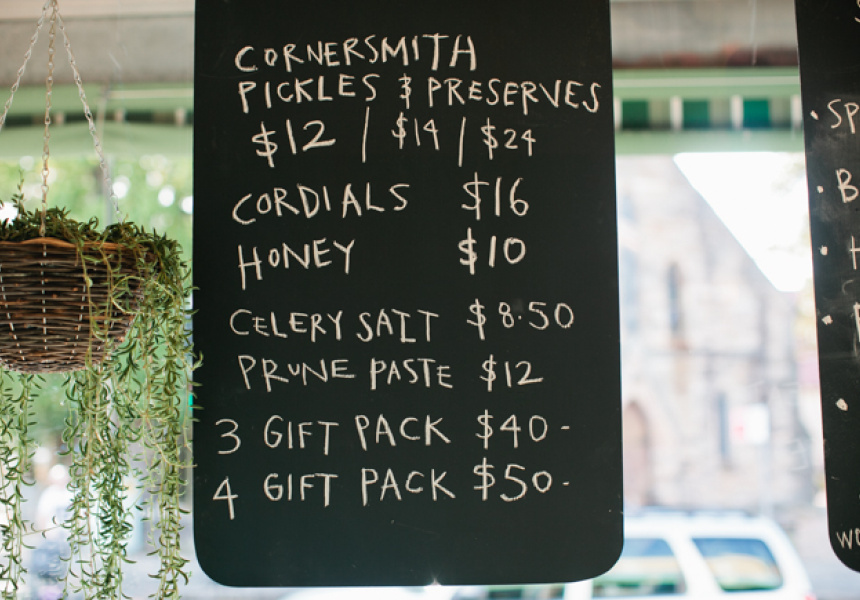 CORNERSMITH
PICKLES & PRESERVES
$12 | $14 | $24
CORDIALS $16
HONEY $10
CELERY SALT $8.50
PRUNE PASTE $12
3 GIFT PACK $40-
4 GIFT PACK $50-